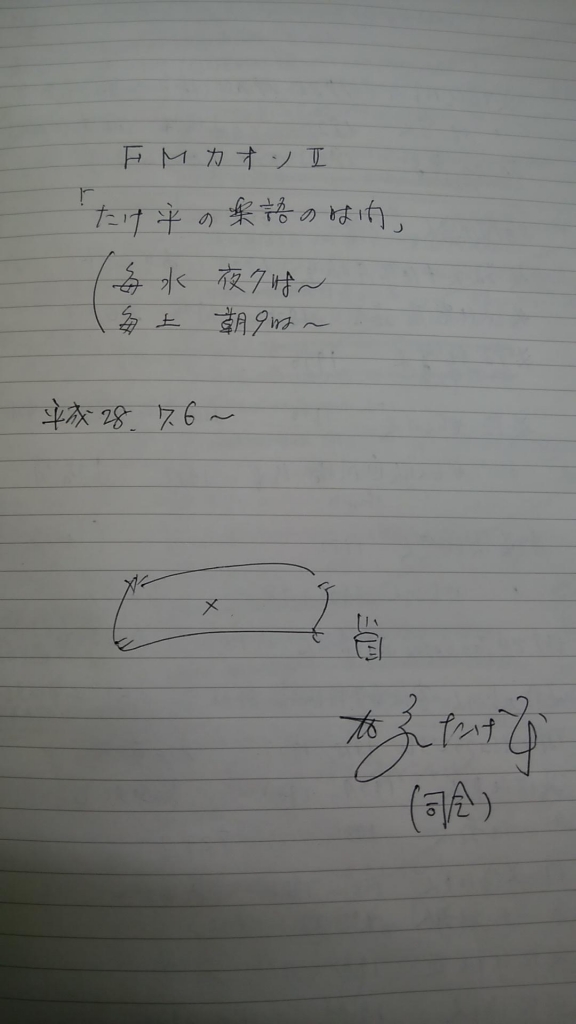 FMカオンⅡ
「たけ平の楽語の時間」
毎水 夜7時〜
毎土 朝9時〜
平成28.7.6〜
たけ平
(司会)